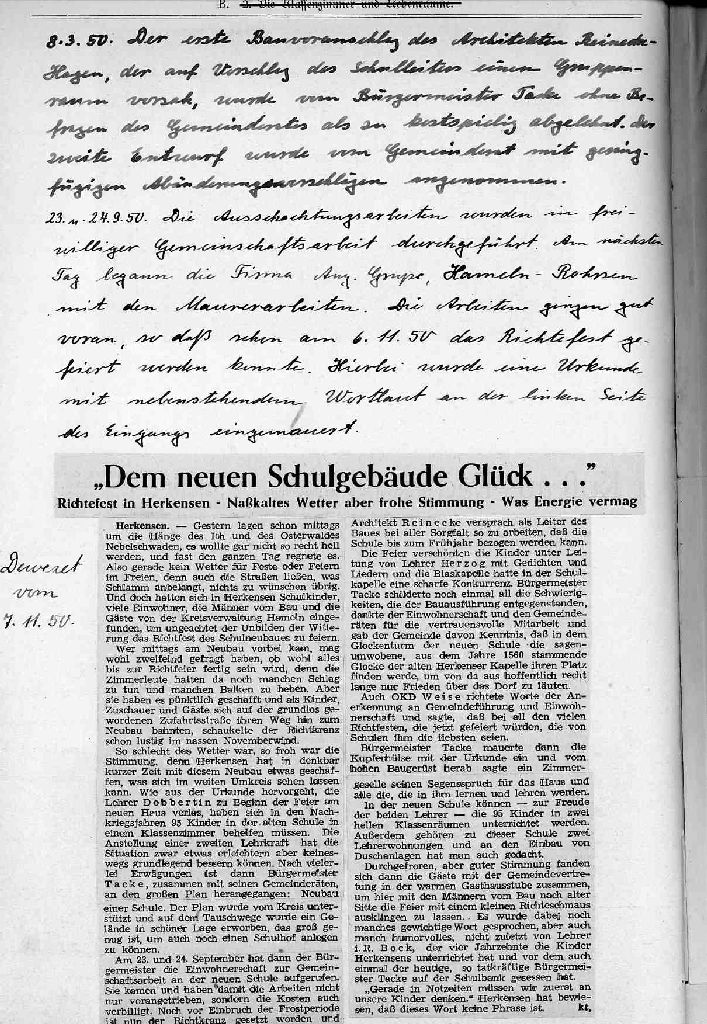 B. 2. Die Klassenzimmer und Nebenräume.
8.3.50. Der erste Bauvoranschlag des Architekten Reinecke-
Hagen, der auf Vorschlag des Schulleiters einen Gruppen-
raum vorsah, wurde vom Bürgermeister Tacke ohne Be-
fragen des Gemeinderates als zu kostspielig abgelehnt. Der
zweite Entwurf wurde vom Gemeinderat mit gering-
fügigen Abänderungsvorschlägen angenommen.
23. u. 24.9.50. Die Ausschachtungsarbeiten wurden in frei-
williger Gemeinschaftsarbeit durchgeführt. Am nächsten
Tag begann die Firma Aug. Grupe, Hameln-Rohrsen
mit den Maurerarbeiten. Die Arbeiten gingen gut
voran, so daß schon am 6.11.50 das Richtefest ge-
feiert werden konnte. Hierbei wurde eine Urkunde
mit nebenstehendem Wortlaut an der linken Seite
des Eingangs eingemauert.
„Dem neuen Schulgebäude Glück . . .”
Richtefest in Herkensen - Naßkaltes Wetter aber frohe Stimmung - Was Energie vermag
Dewezet
vom
7.11.50.
Herkensen. — Gestern lagen schon mittags
um die Hänge des Ith und des Osterwaldes
Nebelschwaden, es wollte gar nicht so recht hell
werden, und fast den ganzen Tag regnete es.
Also gerade kein Wetter für Feste oder Feiern
im Freien, denn auch die Straßen ließen, was
Schlamm anbelangt, nichts zu wünschen übrig.
Und doch hatten sich in Herkensen Schulkinder,
viele Einwohner, die Männer vom Bau und die
Gäste von der Kreisverwaltung Hameln einge-
funden, um ungeachtet der Unbilden der Witte-
rung das Richtfest des Schulneubaues zu feiern.
Wer mittags am Neubau vorbei kam, mag
wohl zweifelnd gefragt haben, ob wohl alles
bis zur Richtfeier fertig sein wird, denn die
Zimmerleute hatten da noch manchen Schlag
zu tun und manchen Balken zu heben. Aber
sie haben es pünktlich geschafft und als Kinder,
Zuschauer und Gäste sich auf der grundlos ge-
wordenen Zufahrtsstraße ihren Weg hin zum
Neubau bahnten, schaukelte der Richtkranz
schon lustig im nassen Novemberwind.
So schlecht das Wetter war, so froh war die
Stimmung, denn Herkensen hat in denkbar
kurzer Zeit mit diesem Neubau etwas geschaf-
fen, was sich im weiten Umkreis sehen lassen
kann. Wie aus der Urkunde hervorgeht, die
Lehrer Dobbertin zu Beginn der Feier am
neuen Haus verlas, haben sich in den Nach-
kriegsjahren 95 Kinder in der alten Schule in
einem Klassenzimmer behelfen müssen. Die
Anstellung einer zweiten Lehrkraft hat die
Situation zwar etwas erleichtern aber keines-
wegs grundlegend bessern können. Nach vieler-
lei Erwägungen ist dann Bürgermeister
Tacke, zusammen mit seinen Gemeinderäten,
an den großen Plan herangegangen: Neubau
einer Schule. Der Plan wurde vom Kreis unter-
stützt und auf dem Tauschwege wurde ein Ge-
lände in schöner Lage erworben, das groß ge-
nug ist, um auch noch einen Schulhof anlegen
zu können.
Am 23. und 24. September hat dann der Bür-
germeister die Einwohnerschaft zur Gemein-
schaftsarbeit an der neuen Schule aufgerufen.
Sie kamen und haben damit die Arbeiten nicht
nur vorangetrieben, sondern die Kosten auch
verbilligt. Noch vor Einbruch der Frostperiode
ist nun der Richtkranz gesetzt worden und
Architekt Reinecke versprach als Leiter des
Baues bei aller Sorgfalt so zu arbeiten, daß die
Schule bis zum Frühjahr bezogen werden kann.
Die Feier verschönten die Kinder unter Lei-
tung von Lehrer Herzog mit Gedichten und
Liedern und die Blaskapelle hatte in der Schul-
kapelle eine scharfe Konkurrenz. Bürgermeister
Tacke schilderte noch einmal all die Schwierig-
keiten, die der Bauausführung entgegenstanden,
dankte der Einwohnerschaft und den Gemeinde-
räten für die vertrauensvolle Mitarbeit und
gab der Gemeinde davon Kenntnis, daß in dem
Glockenturm der neuen Schule die sagen-
umwobene, aus dem Jahre 1560 stammende
Glocke der alten Herkenser Kapelle ihren Platz
finden werde, um von da aus hoffentlich recht
lange nur Frieden über das Dorf zu läuten.
Auch OKD Weise richtete Worte der An-
erkennung an Gemeindeführung und Einwoh-
nerschaft und sagte, daß bei all den vielen
Richtfesten, die jetzt gefeiert würden, die von
Schulen ihm die liebsten seien.
Bürgermeister Tacke mauerte dann die
Kupferhülse mit der Urkunde ein und vom
hohen Baugerüst herab sagte ein Zimmer-
geselle seinen Segensspruch für das Haus und
alle die, die in ihm lernen und lehren werden.
In der neuen Schule können — zur Freude
der beiden Lehrer — die 95 Kinder in zwei
hellen Klassenräumen unterrichtet werden.
Außerdem gehören zu dieser Schule zwei
Lehrerwohnungen und an den Einbau von
Duschanlagen hat man auch gedacht.
Durchgefroren, aber guter Stimmung fanden
sich dann die Gäste mit der Gemeindevertre-
tung in der warmen Gasthausstube zusammen,
um hier mit den Männern vom Bau nach alter
Sitte die Feier mit einem kleinen Richteschmaus
ausklingen zu lassen. Es wurde dabei noch
manches gewichtige Wort gesprochen, aber auch
manch humorvolles, nicht zuletzt von Lehrer
i. R. Bock, der vier Jahrzehnte die Kinder
Herkensens unterrichtet hat und vor dem auch
einmal der heutige, so tatkräftige Bürgermei-
ster Tacke auf der Schulbank gesessen hat.
„Gerade in Notzeiten müssen wir zuerst an
unsere Kinder denken.” Herkensen hat bewie-
sen, daß dieses Wort keine Phrase ist. kt.